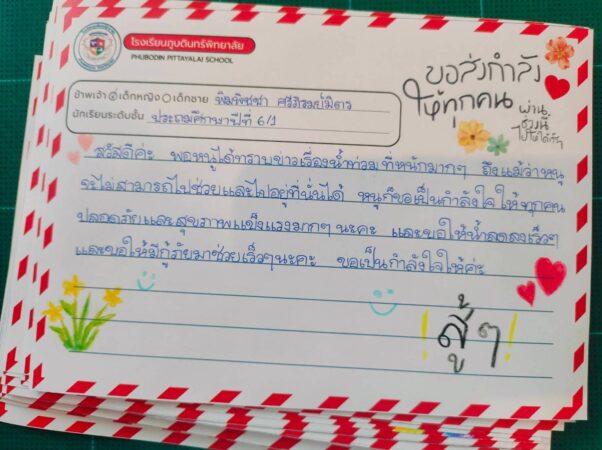 โรงเรียนภูบดินทร์พิทยาลัย
PHUBODIN PITTAYALAI SCHOOL
ขอส่งกำลัง
ให้ทุกคน
ผ่าน
ช่วงนี้
ไปให้ได้
ข้าพเจ้า เด็กหญิง เด็กชาย พิมพิชชา
นักเรียนระดับชั้น ประถมศึกษาปีที่ 6/1
สวัสดีค่ะ พอหนูได้ทราบข่าวเรื่องน้ำท่วมที่หนักมากๆ ถึงแม้ว่าหนู
จะไม่สามารถไปช่วยและไปอยู่ที่นั่นได้ หนูก็ขอเป็นกำลังใจให้ทุกคน
ปลอดภัยและสุขภาพแข็งแรงมากๆ นะคะ และขอให้น้ำลดลงเร็วๆ
และขอให้มีกู้ภัยมาช่วยเร็วๆนะคะ ขอเป็นกำลังใจให้ค่ะ
!สู้ๆ!